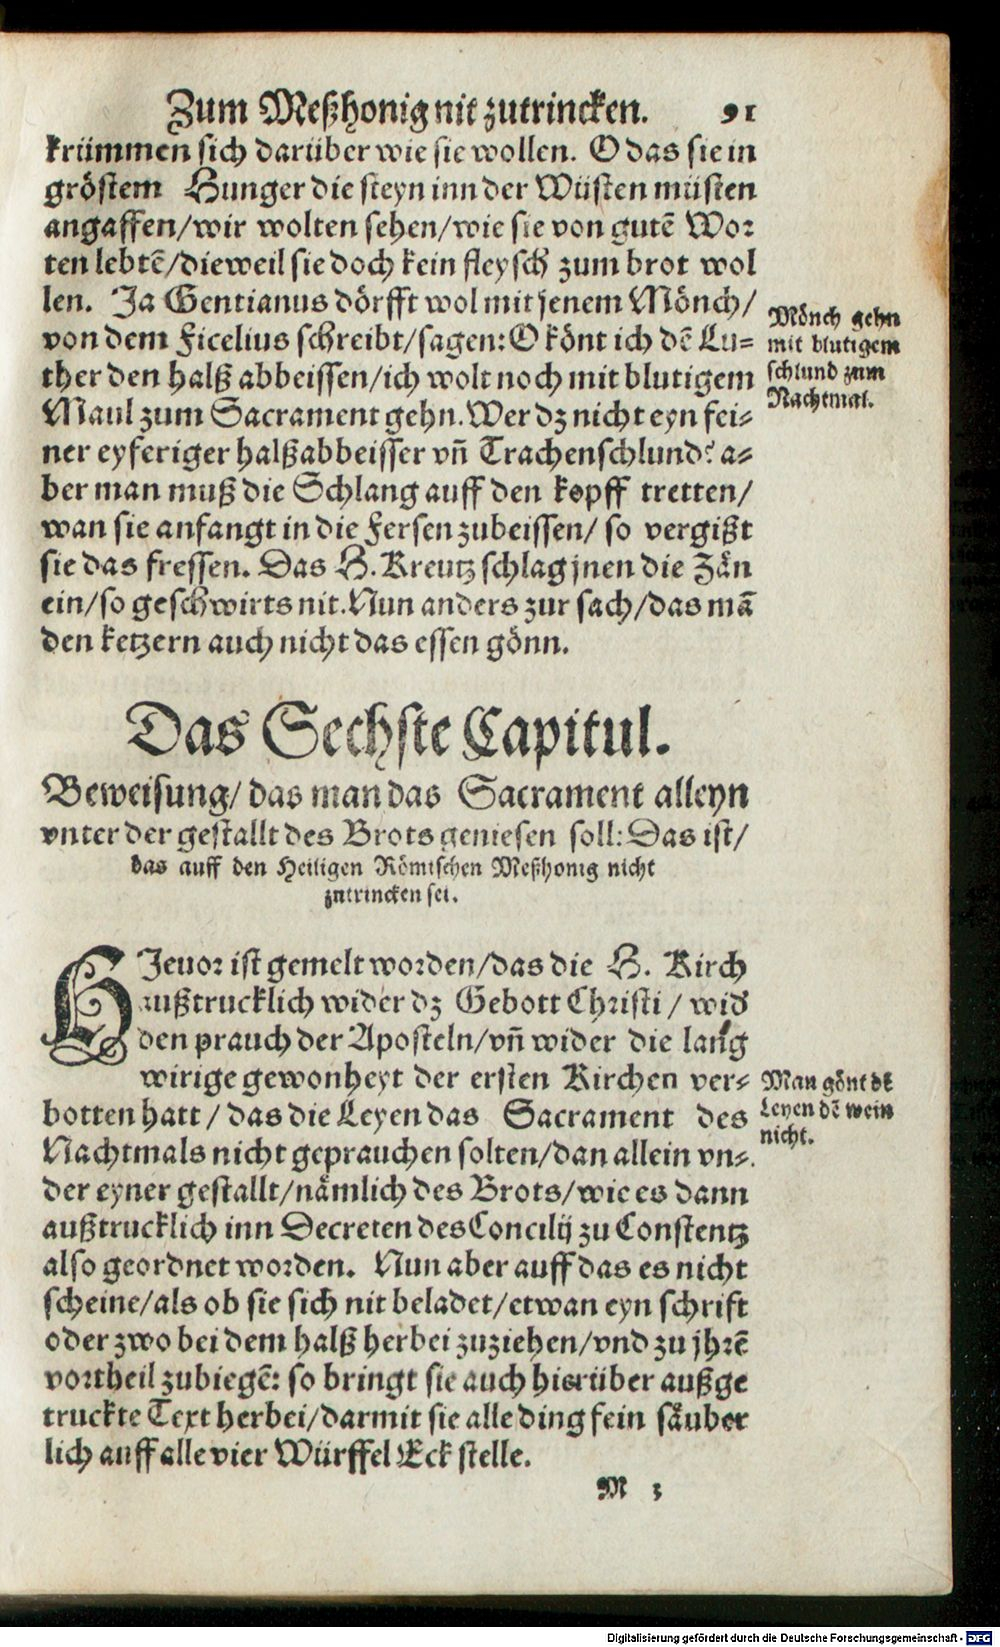 Zum Meßhonig nit zutrincken. 91
krümmen sich darüber wie sie wollen. O das sie in
gröstem Hunger die steyn inn der Wüsten müsten
angaffen/wir wolten sehen/wie sie von gutē Wor
ten lebtē/dieweil sie doch kein fleysch zum brot wol
len. Ja Gentianus dörfft wol mit jenem Mönch/
von dem Ficelius schreibt/sagen: O könt ich dē Lu=
ther den halß abbeissen/ich wolt noch mit blutigem
Maul zum Sacrament gehn. Wer dz nicht eyn fei=
ner eyferiger halßabbeisser vñ Trachenschlund? a=
ber man muß die Schlang auff den kopff tretten/
wan sie anfangt in die Fersen zubeissen/ so vergißt
sie das fressen. Das H. Kreutz schlag jnen die Zän
ein/so geschwirts nit. Nun anders zur sach/das mā
den ketzern auch nicht das essen gönn.
Mönch gehn
mit blutigem
schlund zum
Nachtmal.
Das Sechste Capitul.
Beweisung/ das man das Sacrament alleyn
vnter der gestallt des Brots geniesen soll: Das ist/
das auff den Heiligen Römischen Meßhonig nicht
zutrincken sei.
HJeuor ist gemelt worden/das die H. Kirch
außtrucklich wider dz Gebott Christi/ wid
den prauch der Aposteln/vñ wider die lang
wirige gewonheyt der ersten Kirchen ver=
botten hatt/ das die Leyen das Sacrament des
Nachtmals nicht geprauchen solten/dan allein vn=
der eyner gestallt/nämlich des Brots/wie es dann
außtrucklich inn Decreten des Concilij zu Constentz
also geordnet worden. Nun aber auff das es nicht
scheine/als ob sie sich nit beladet/etwan eyn schrift
oder zwo bei dem halß herbei zuziehen/vnd zu jhrē
vortheil zubiegē: so bringt sie auch hierüber außge
truckte Text herbei/darmit sie alle ding fein säuber
lich auff alle vier Würffel Eck stelle.
Man gönt dē
Leyen dē wein
nicht.
M 3
Digitalisierung gefördert durch die Deutsche Forschungsgemeinschaft - DFG